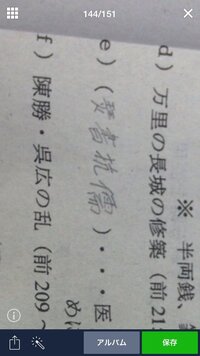 144/151
※ 半両銭、
d) 万里の長城の修築 (前21
e) (焚書抗儒)・・・医
めに
f) 陳勝・呉広の乱 (前209～
アルバム
保存